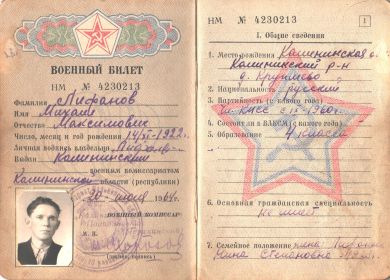 ВОЕННЫЙ БИЛЕТ
НМ № 4230213
Фамилия Лифанов
Имя Михаил
Отчество Максимович
Число, месяц и год рождения 1922 г.
Личная подпись владельца
Выдан Калининский
военным комиссариатом
Калининской области (республики)
196 г.
Военный комиссар
М. П.
НМ № 4230213
1
I. Общие сведения
1. Месторождения Калининская о.
Калининский р-н
д.
2. Национальность русский
3. Партийность (с какого года)
чл. КПСС с 1960 г.
4. Состоит ли в ВЛКСМ (с какого года)
5. Образование 4 класса
6. Основная гражданская специальность
не имеет
7. Семейное положение жена
Нина Степановна